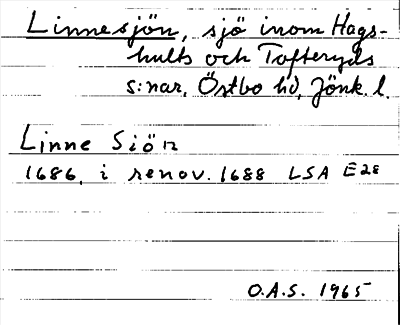 Linnesjön, sjö inom Hags-
hults och Tofteryds
s:nar, Östbo hd, Jönk. l.
Linne Siön
1686, i renov. 1688 LSA E28
O.A.S. 1965